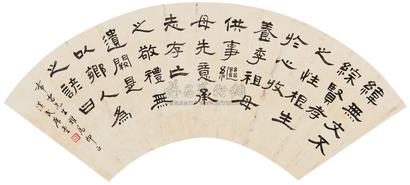 緯無文不
綜賢孝
之性根生
於心收
養季祖母
供事繼
母先意承
志存亡
之敬禮無
遺闕是
以鄉人為
之諺曰
先生